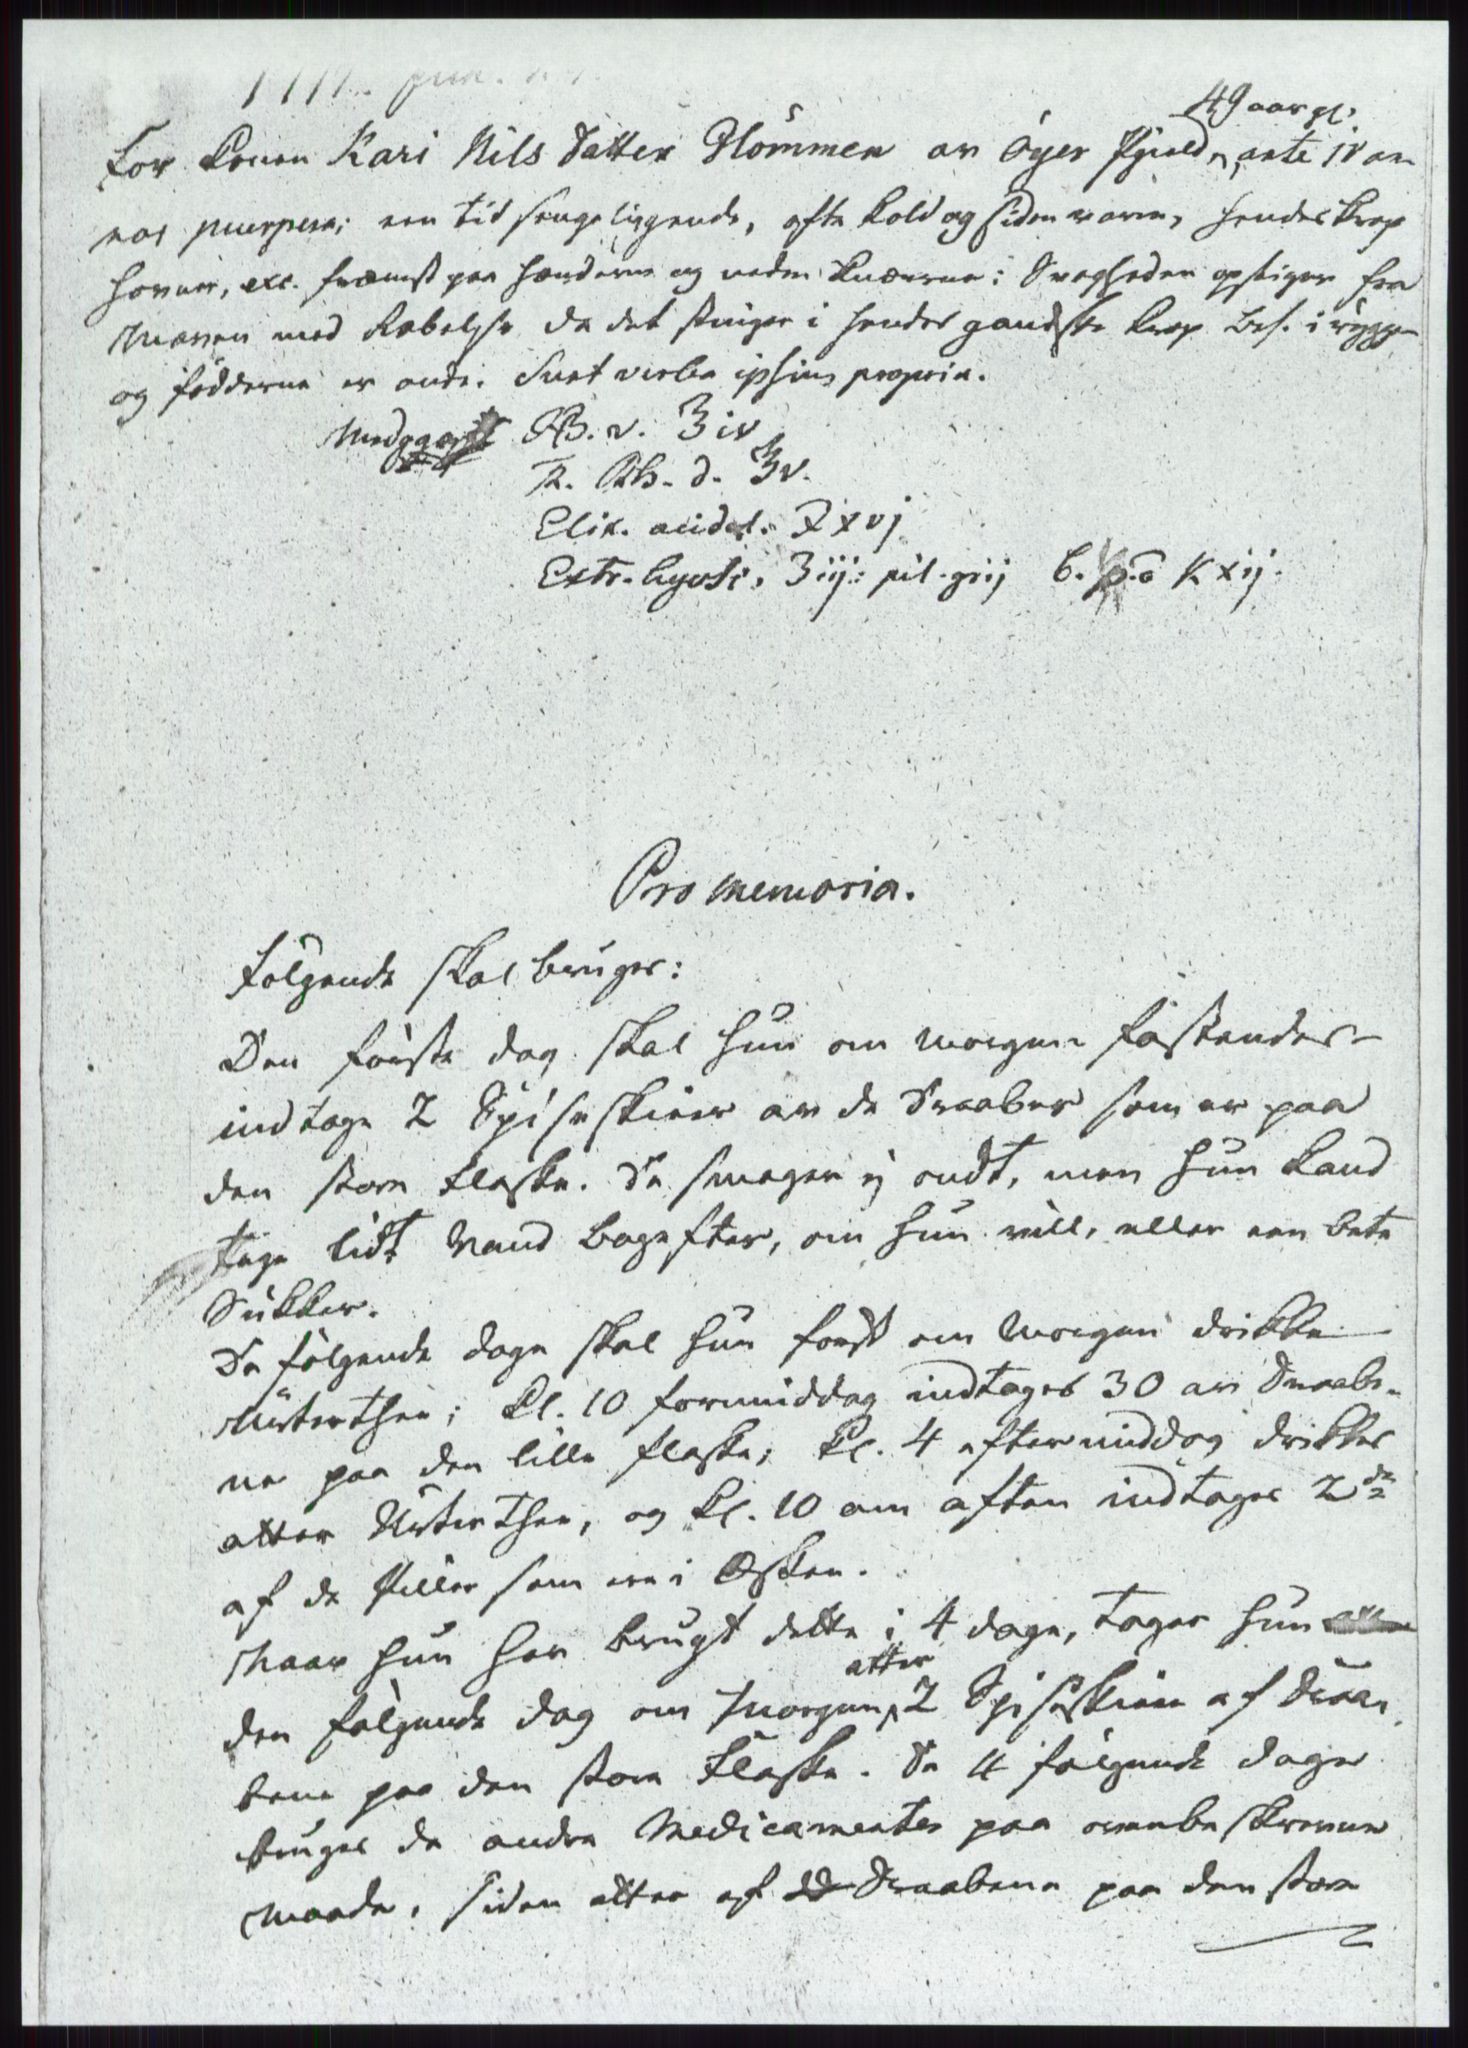 49 aar gl.
For Konen Kari Nils Datter Flömmen av Öyer Pgield, ante 18 an-
nos puerpera; een tid sengeliggende, ofte kold og siden varm, hendes krop
hovner, exc. fremst paa hænderne og neden knæerne: Svagheden opstiger fra
Maven med Kobelse da det stinger i hendes gandske krop bes. i rygge-
og fødderne er onde. Sunt verba ipsius propria.
Medgegaest . v. ʒiv
R. Rh. d. ʒv.
Elix. acid. xvj
Extr. ʒiij: pil. gr ij K xij.
Pro memoria.
Følgende skal bruges:
Den første dag skal hun om morgen fastendes
indtage 2 Spiseskieer av de Draaber som er paa
den store Flaske. De smager ej ondt, men hun kand
tage lidt Vand bagefter, om hun vill, eller een bete
Sukker.
De følgende dage skal hun først om Morgen drikke
Urtethee; kl. 10 formiddag indtages 30 av Draabe-
ne paa den lille flaske; kl. 4 eftermiddag drikkes
atter Urtethee, og kl. 10 om aften indtages 2de
af de Piller som ere i Æsken.
Naar hun har brugt dette i 4 dage, tager hun
den følgende dag om Morgenen atter 2 Spiseskiee af Draa-
bene paa den store Flaske. De 4 følgende dage
bruges de andre Medicamenter paa ovenbeskrevne
Maade, siden atter af Draabene paa den store